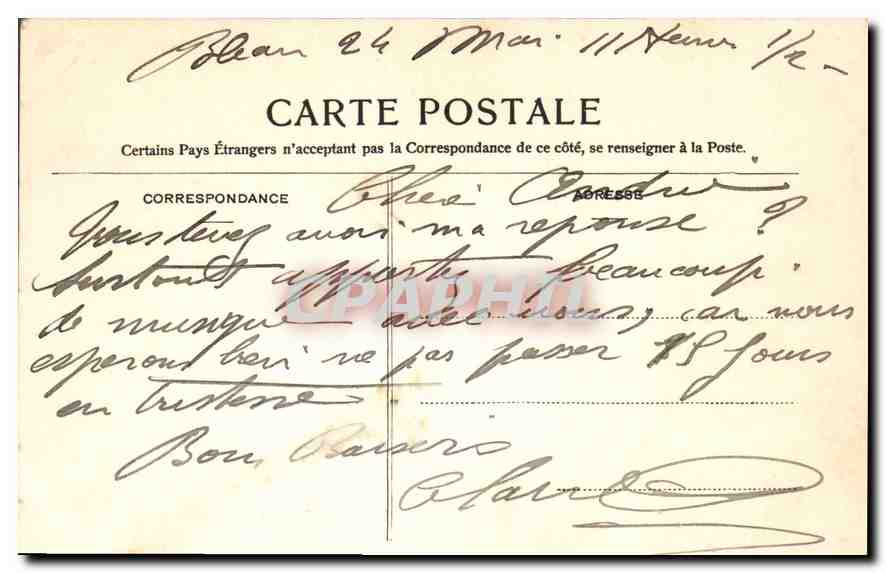 24 Mai 11 Heures 1/2 -
CARTE POSTALE
Certains Pays Étrangers n'acceptant pas la Correspondance de ce côté, se renseigner à la Poste.
CORRESPONDANCE
ADRESSE
Cher André
avoir ma reponse ?
Surtout apporte beaucoup
de musique avec vous, car nous
esperons bien ne pas passer 15 Jours
en tristesse
Bons Baisers
CPAPHIL